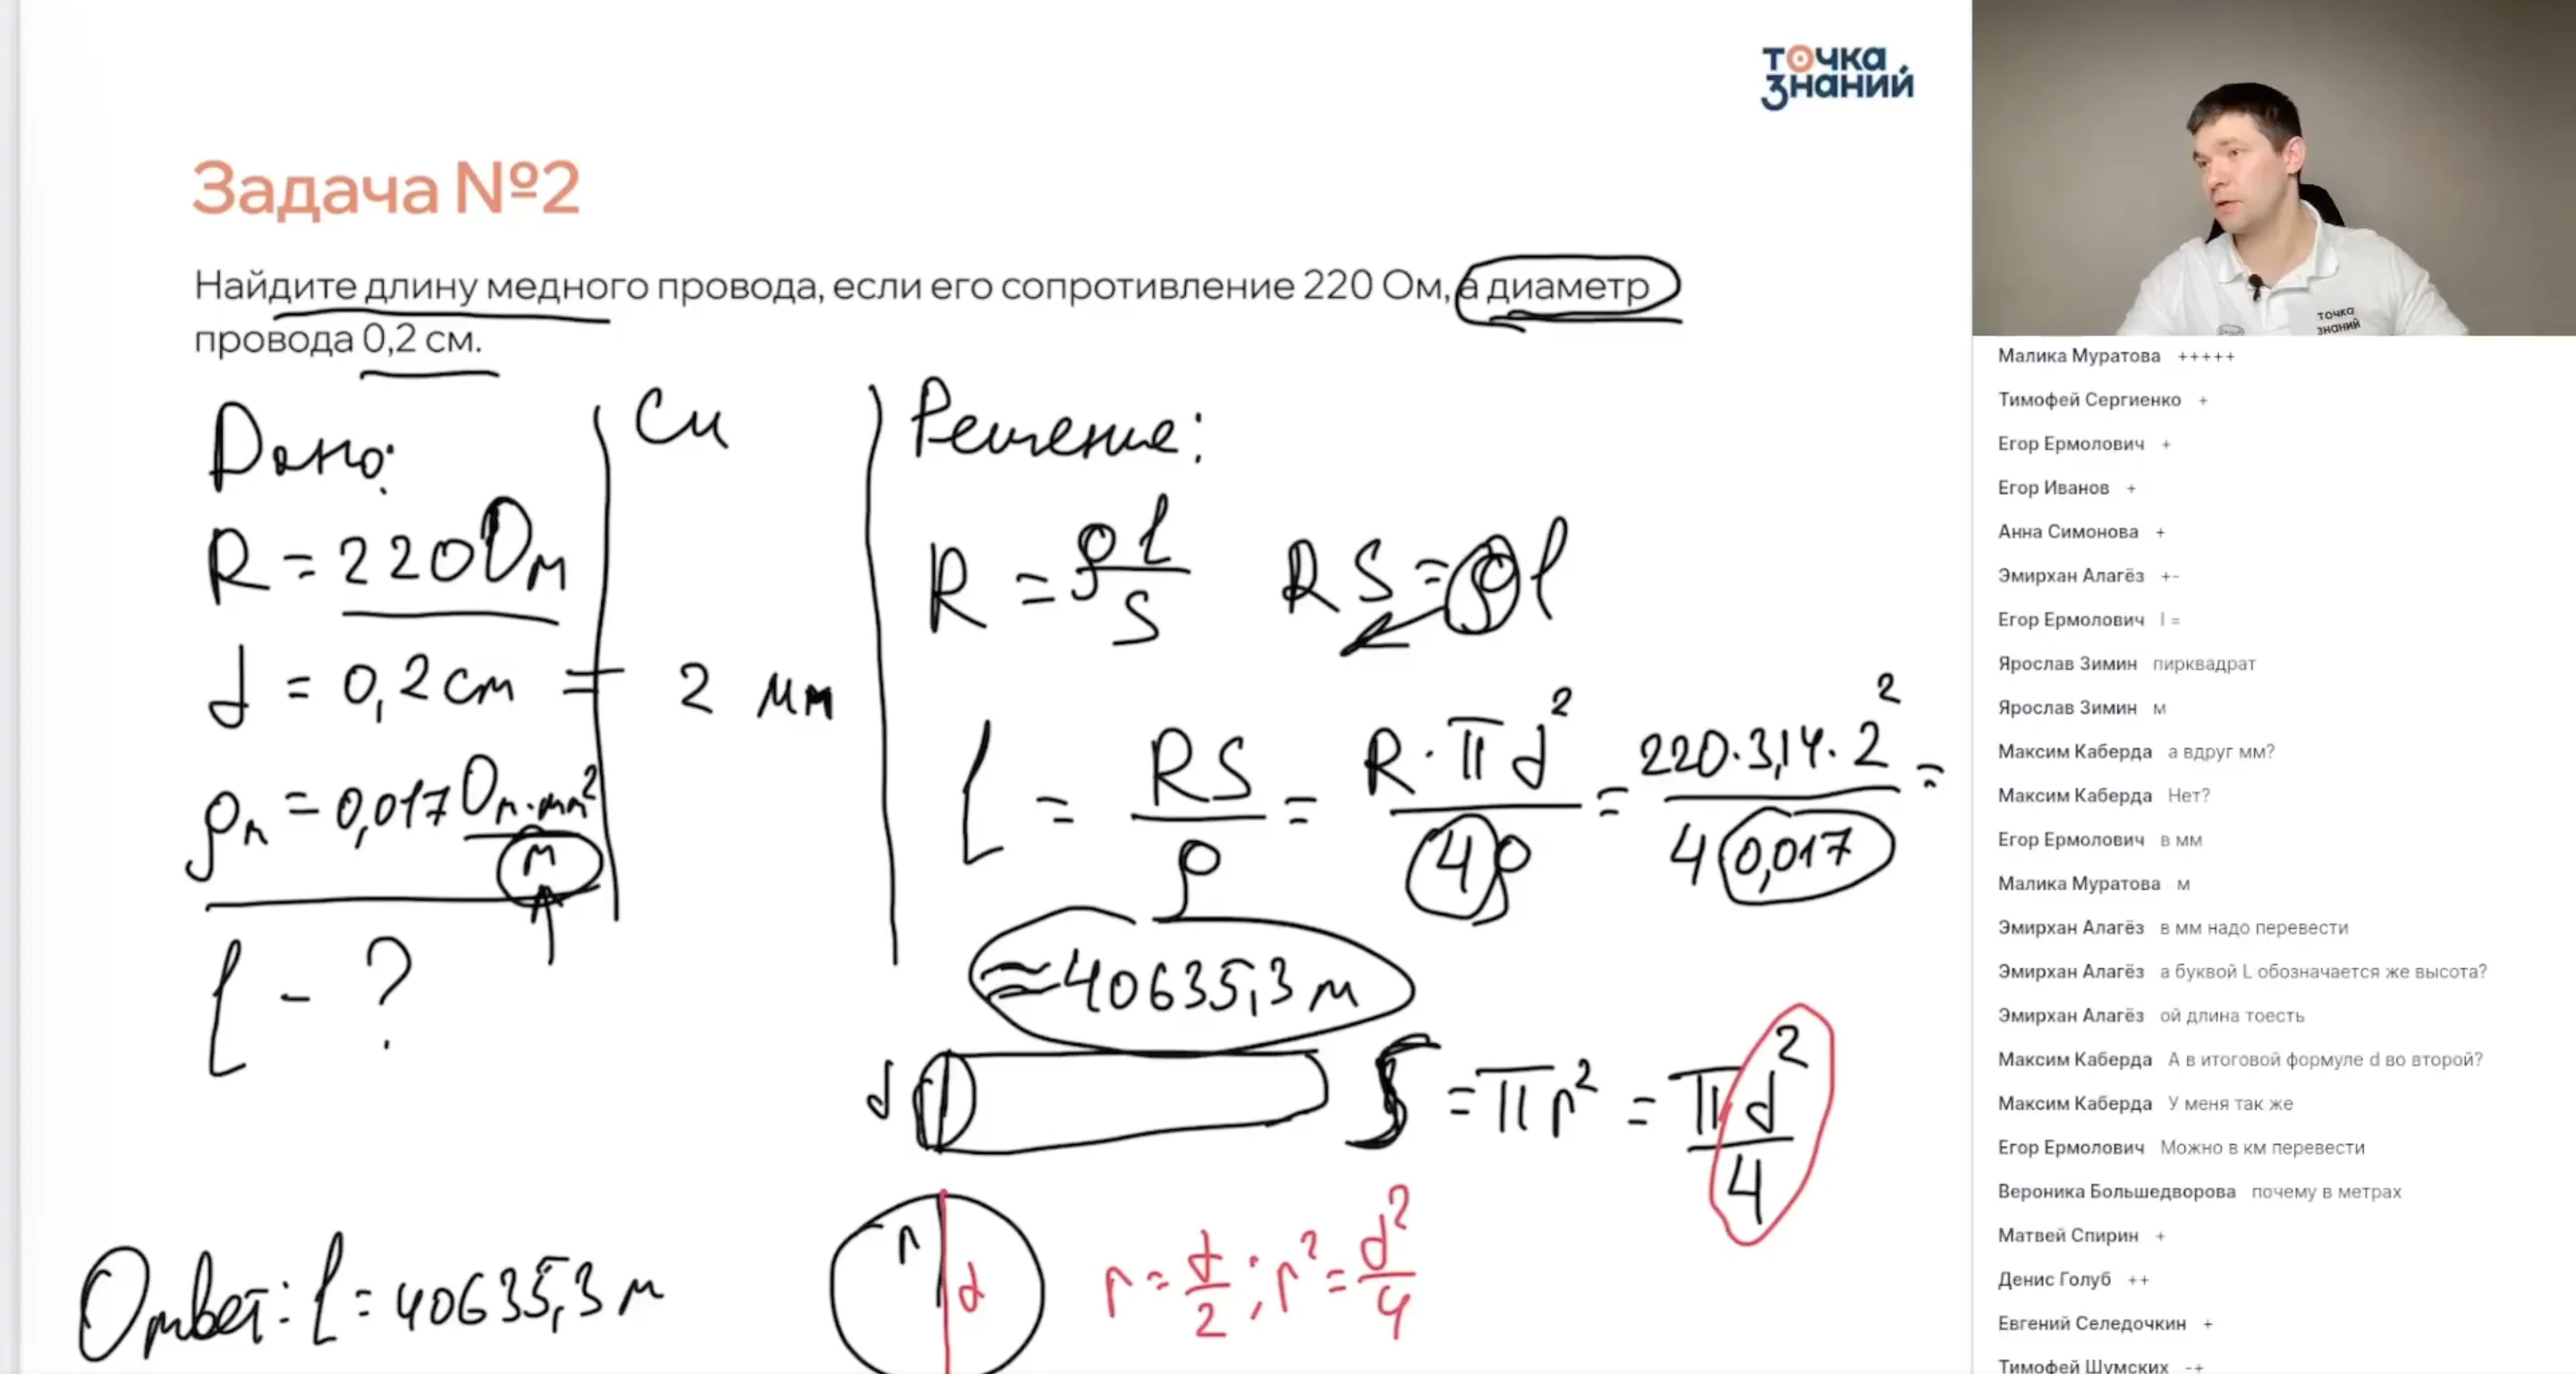 точка
знаний
Задача №2
Найдите длину медного провода, если его сопротивление 220 Ом, а диаметр
провода 0,2 см.
Дано:
Си
Решение:
R = 220 Ом
d = 0,2 см = 2 мм
ρм = 0,017 Ом·мм²/м
l - ?
R = ρl/S
RS = ρl
l = RS/ρ = R·πd²/4ρ = 220·3,14·2²/4 0,017 =
≈40635,3 м
d
S = πr² = πd²/4
r
d
r = d/2 ; r² = d²/4
Ответ: l = 40635,3 м
точка
знаний
Малика Муратова +++++
Тимофей Сергиенко +
Егор Ермолович +
Егор Иванов +
Анна Симонова +
Эмирхан Алагёз +-
Егор Ермолович l =
Ярослав Зимин пирквадрат
Ярослав Зимин м
Максим Каберда а вдруг мм?
Максим Каберда Нет?
Егор Ермолович в мм
Малика Муратова м
Эмирхан Алагёз в мм надо перевести
Эмирхан Алагёз а буквой L обозначается же высота?
Эмирхан Алагёз ой длина тоесть
Максим Каберда А в итоговой формуле d во второй?
Максим Каберда У меня так же
Егор Ермолович Можно в км перевести
Вероника Большедворова почему в метрах
Матвей Спирин +
Денис Голуб ++
Евгений Селедочкин +
Тимофей Шумских -+